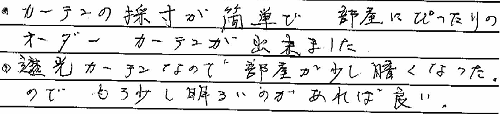 ・カーテンの採寸が簡単で 部屋にぴったりの
オーダー カーテンが出来ました
・遮光カーテンなので 部屋が少し暗くなった。
ので もう少し明るいのがあれば良い。